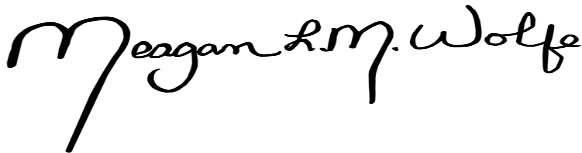 Meagan L.M. Wolfe